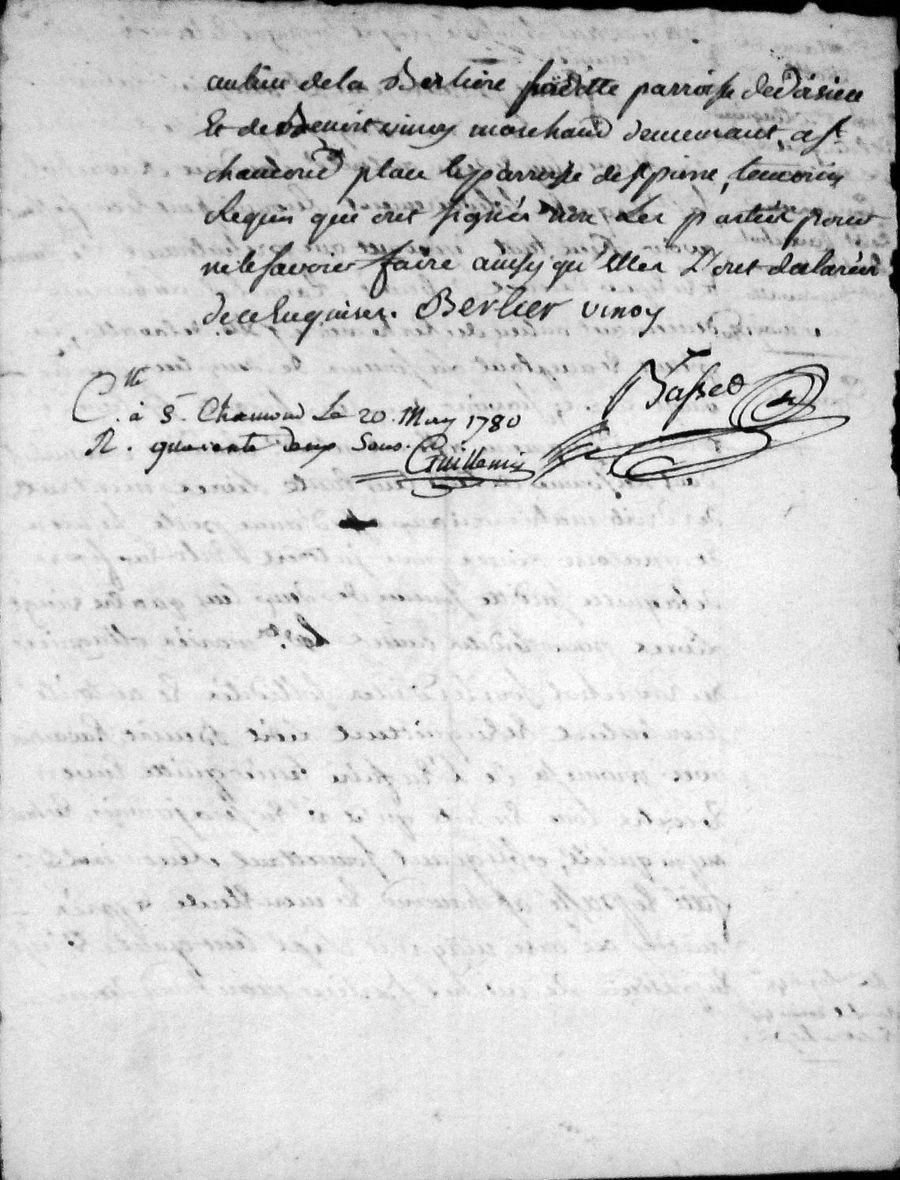 au lieu de la Berliere susditte parroisse de d'isieu
Et de Benoit vinoy marchand demeurant, a st
chamond place & parroisse de st pierre, temoins
Requis qui ont signés non Les parties pour
ne le savoir faire ainsy qu'elles L'ont declaré
de ce Enquises. Berlier vinoy
Basset
C.lé à St. Chamond Le 20. May 1780
R. quarante deux Sous. Guillemin